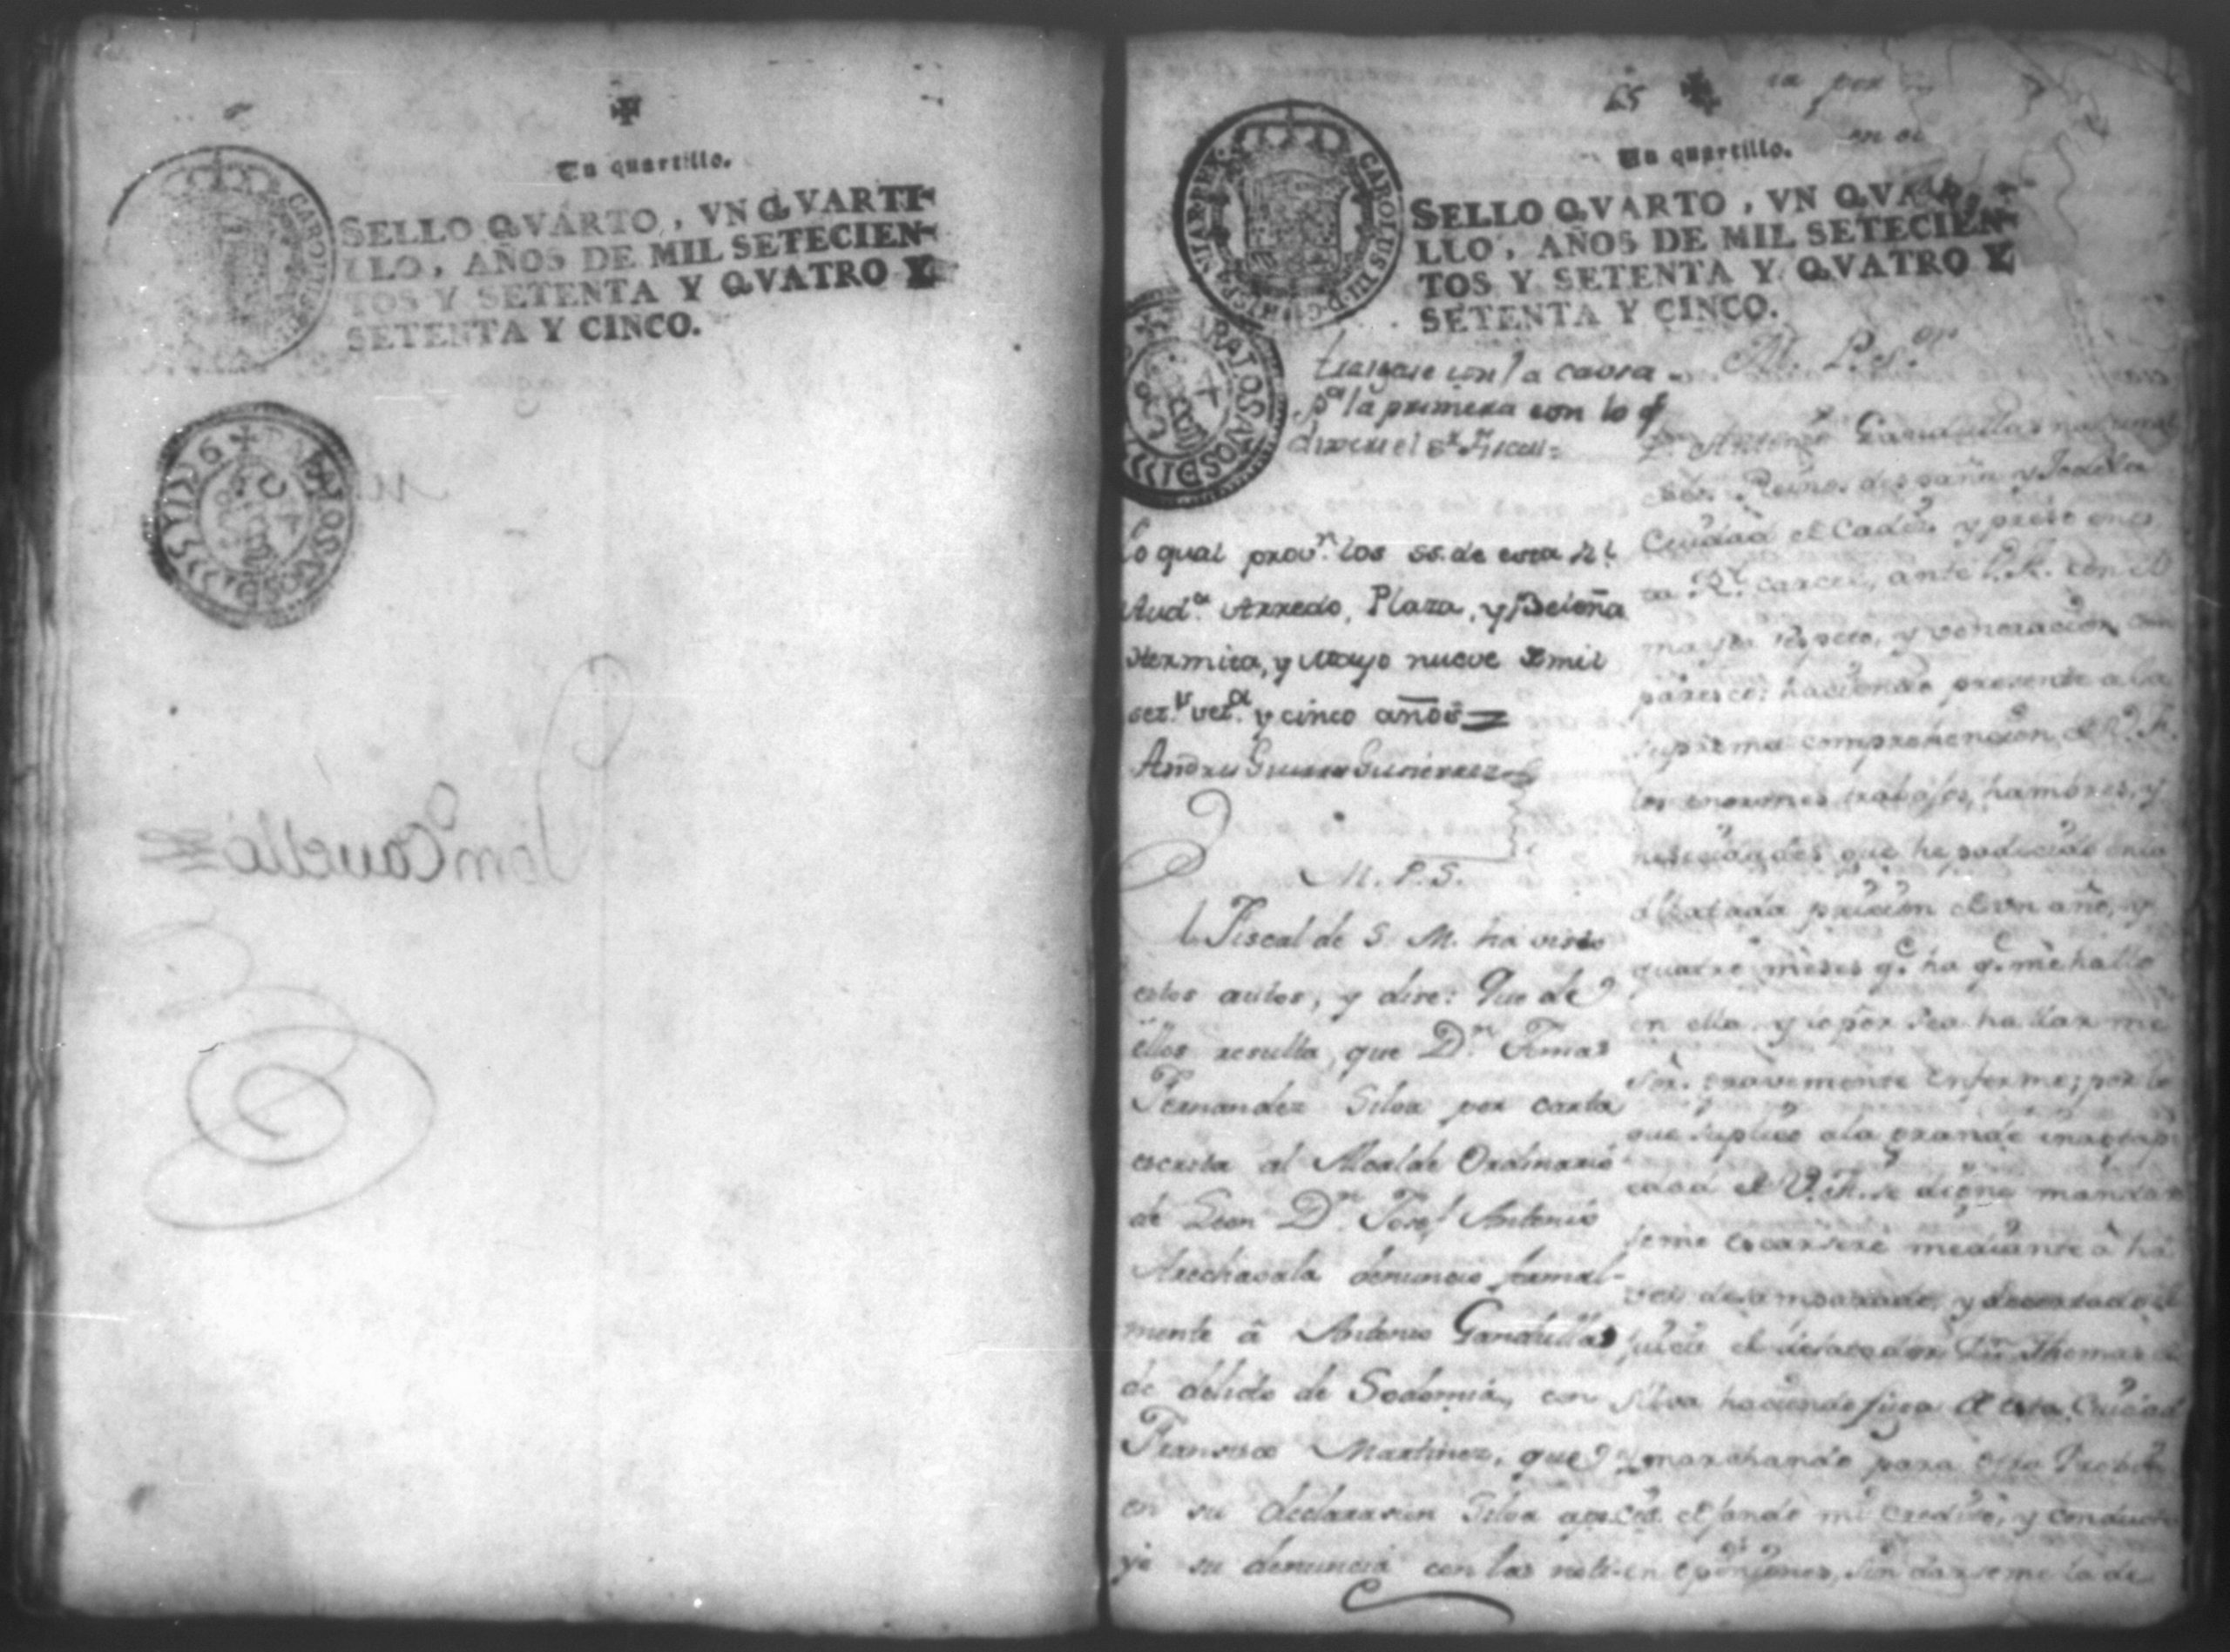 Un quartillo.
SELLO QVARTO, VN QVARTI-
LLO, AÑOS DE MIL SETECIEN-
TOS Y SETENTA Y QVATRO Y
SETENTA Y CINCO.
65
Un quartillo.
SELLO QVARTO, VN QVARTI-
LLO, AÑOS DE MIL SETECIEN-
TOS Y SETENTA Y QVATRO Y
SETENTA Y CINCO.
CAROLUS III D G HISPANIAR REX
traigase con la causa
pa. la primera con lo q
dixere el Sr. Fiscal =
Lo qual prov.n los SS. de esta Rl.
Aud.a Arredo, Plaza, y Beleña
Hermita, y Mayo nueve de mil
set.s set.a y cinco años =
Andres Guerra Gutierrez
M. P. S.
El Fiscal de S. M. ha visto
estos autos, y dice: Que de
ellos resulta, que D.n Tomas
Fernandez Silva por carta
escrita al Alcalde Ordinario
de Leon D.n Josef Antonio
Arechavala denuncio formal-
mente â Antonio Gandullas
de delicto de Sodomia, con
Francisco Martinez, que
en su declarasion Silva apo-
yo su denuncia con las noti-
M. P. S.or
D.n Antonio Gandullas natural
de los Reinos de españa y de la
Ciudad de Cadiz y preso en es
ta R.l carcel, ante V.A. con el
mayor respeto, y veneracion
paresco: haciendo presente a la
suprema comprehencion de V.A.
los enormes trabajos, hambres, y
nesecidades que he padecido en la
dilatada pricion de un año, y
quatro meses q.e ha q.e me hallo
en ella y
gravemente enfermo; por lo
que suplico a la grande
de V.A. se digne mandar
seme escarsere mediante â ha
desamparado, y
juicio el delatador D.n Thomas
Silva haciendo fuga de esta Ciudad
marchando para
dejando mi credito, y
en opiniones, sin darseme la de